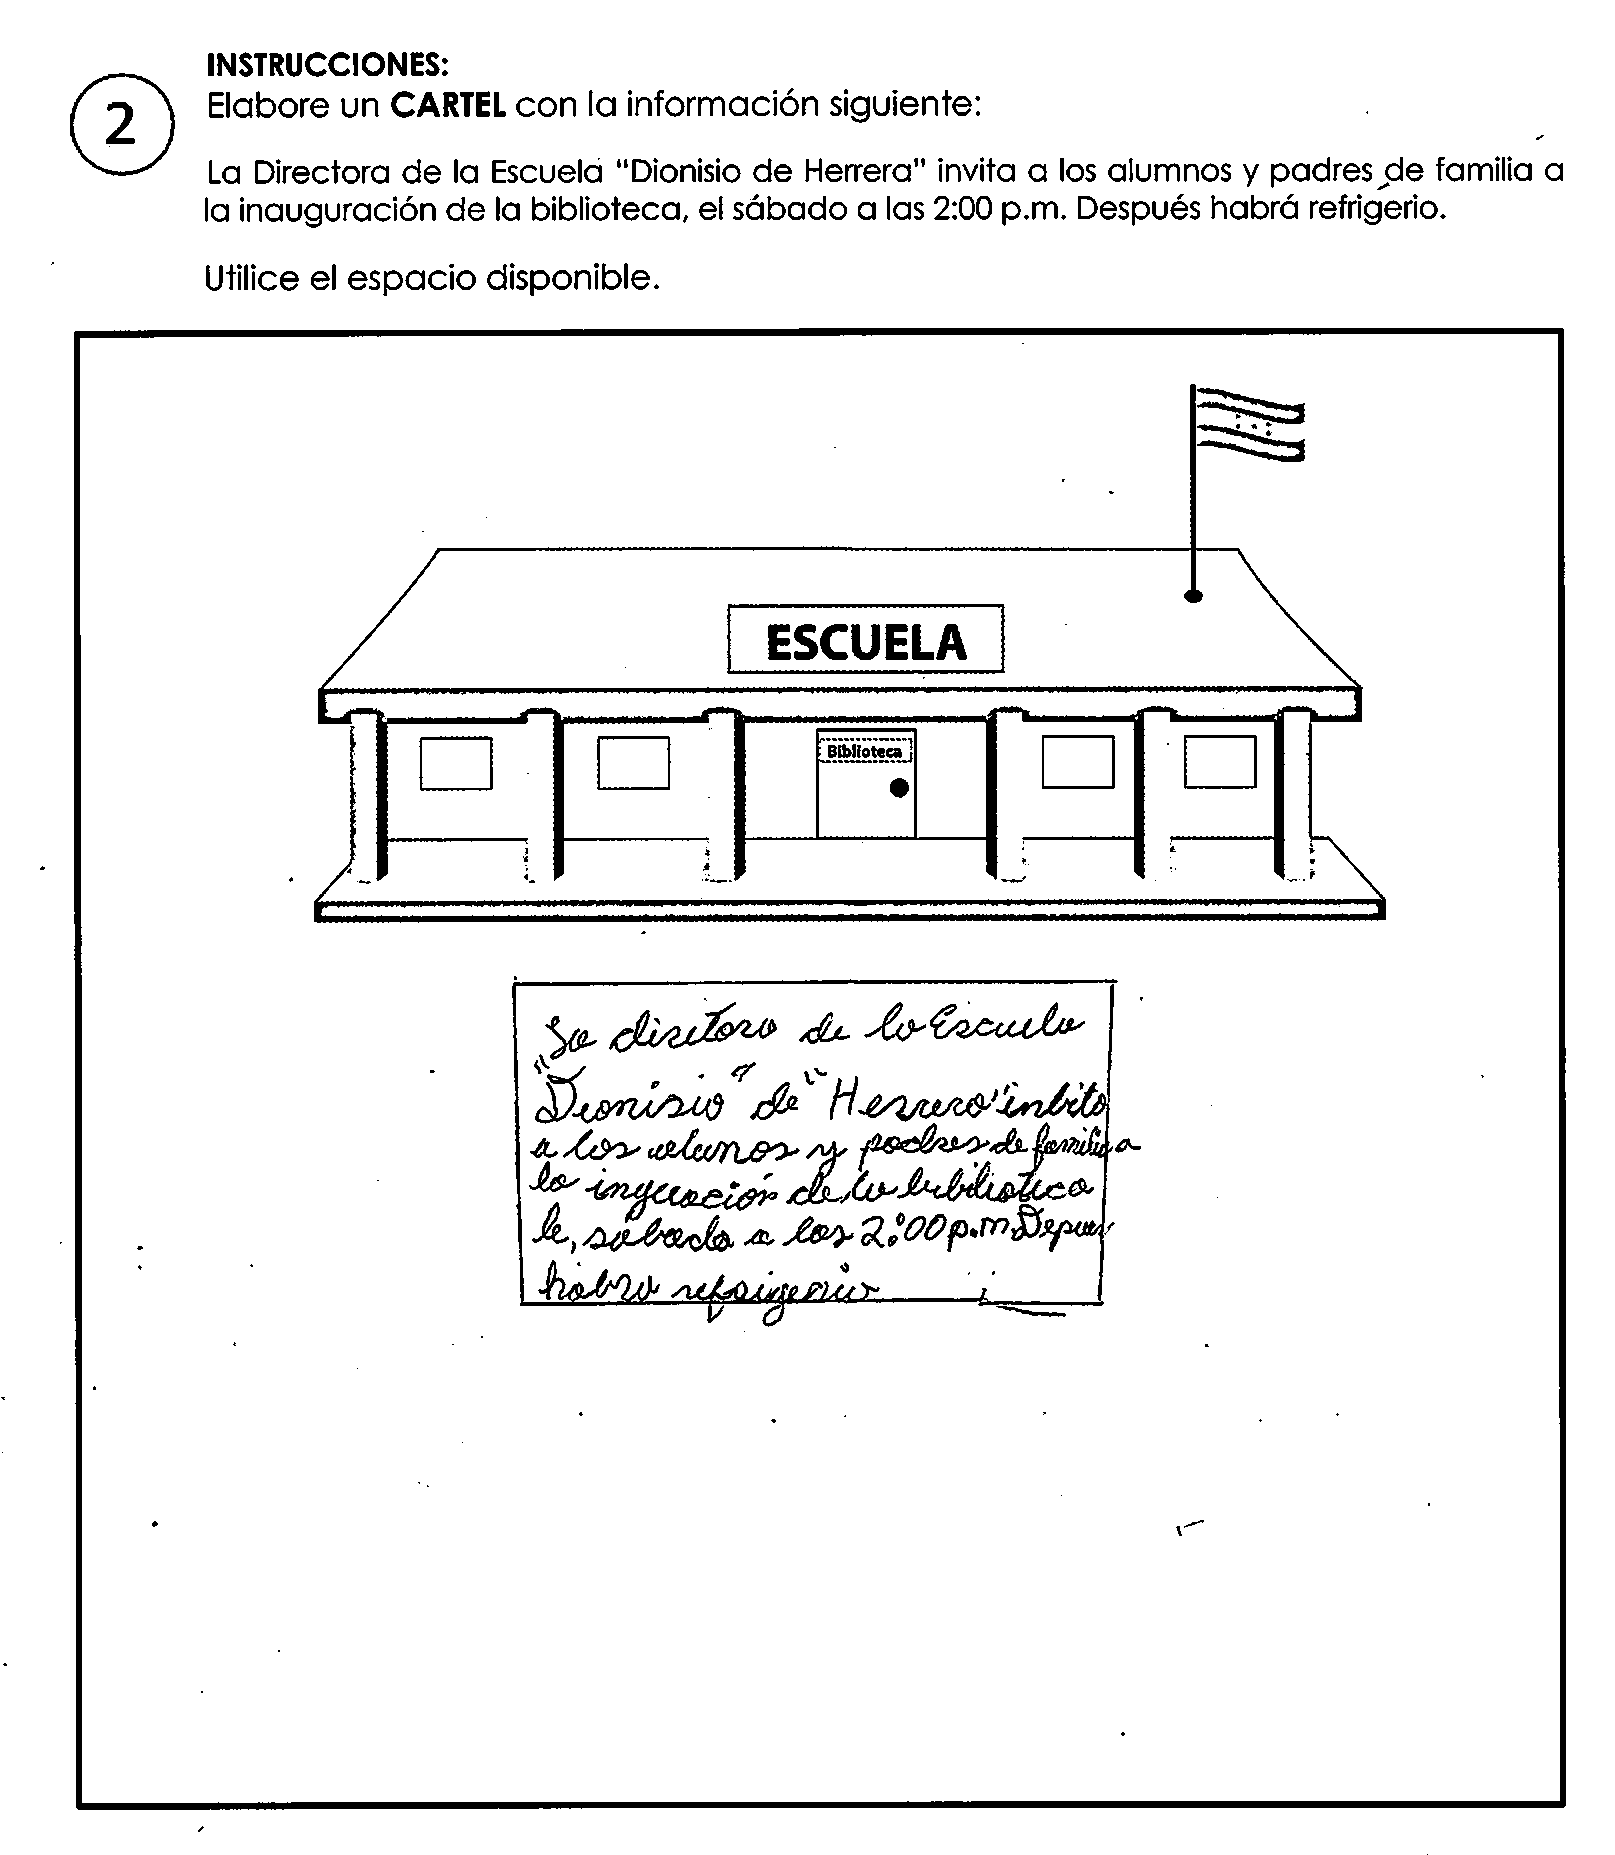 INSTRUCCIONES:
2
Elabore un CARTEL con la información siguiente:
La Directora de la Escuela "Dionisio de Herrera" invita a los alumnos y padres de familia a
la inauguración de la biblioteca, el sábado a las 2:00 p.m. Después habrá refrigerio.
Utilice el espacio disponible.
ESCUELA
Biblioteca
La diretora de la Escuela
"Dionisio" de "Herrera" inbita
a los alunos y padres de familia a
la inguración de la bibilioteca
le, sábado a las 2:00 p.m Depues
habra refrigerio